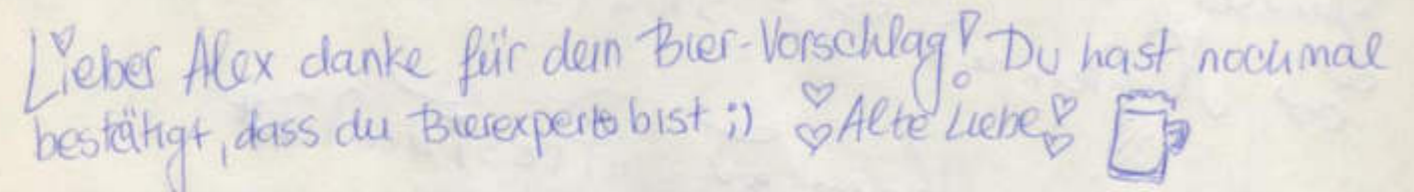 Lieber Alex danke für dein Bier-Vorschlag! Du hast nochmal
bestätigt, dass du Bierexperte bist ;) Alte Liebe